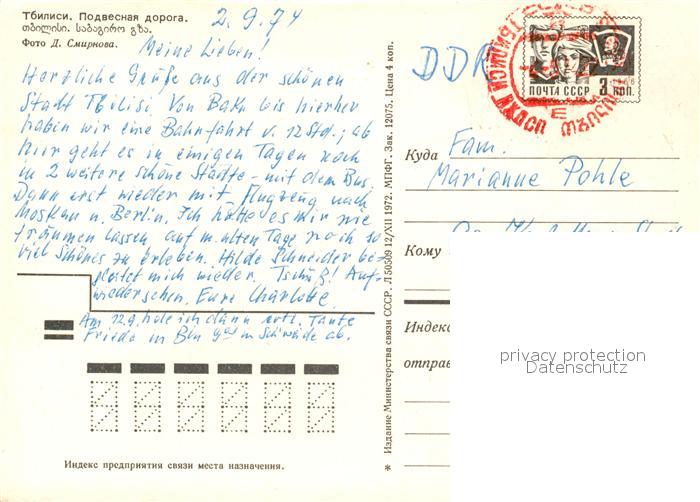 Тбилиси. Подвесная дорога.
თბილისი. საბაგირო გზა.
Фото Д. Смирнова.
2.9.74
Meine Lieben!
Herzliche Grüße aus der schönen
Stadt Tbilisi. Von Baku bis hierher
haben wir eine Bahnfahrt v. 12 Std.; ab
hier geht es in einigen Tagen noch
in 2 weitere schöne Städte - mit dem Bus,
Dann erst wieder mit Flugzeug nach
Moskau u. Berlin. Ich hätte es mir nie
träumen lassen auf m. alten Tage noch so
viel Schönes zu erleben. Hilde Schneider be-
gleitet mich wieder. Tschüß! Auf-
wiedersehen. Eure Charlotte.
Am 12.9. hole ich dann evtl. Tante
Frieda in Bln
ab.
Индекс предприятия связи места назначения.
Издание Министерства связи СССР. Л 50509 12/XII 1972. МПФГ. Зак. 12075. Цена 4 коп.
DDR
ПОЧТА СССР
3 коп.
Куда
Fam.
Marianne Pohle
Кому
Индекс
отправ
privacy protection
Datenschutz